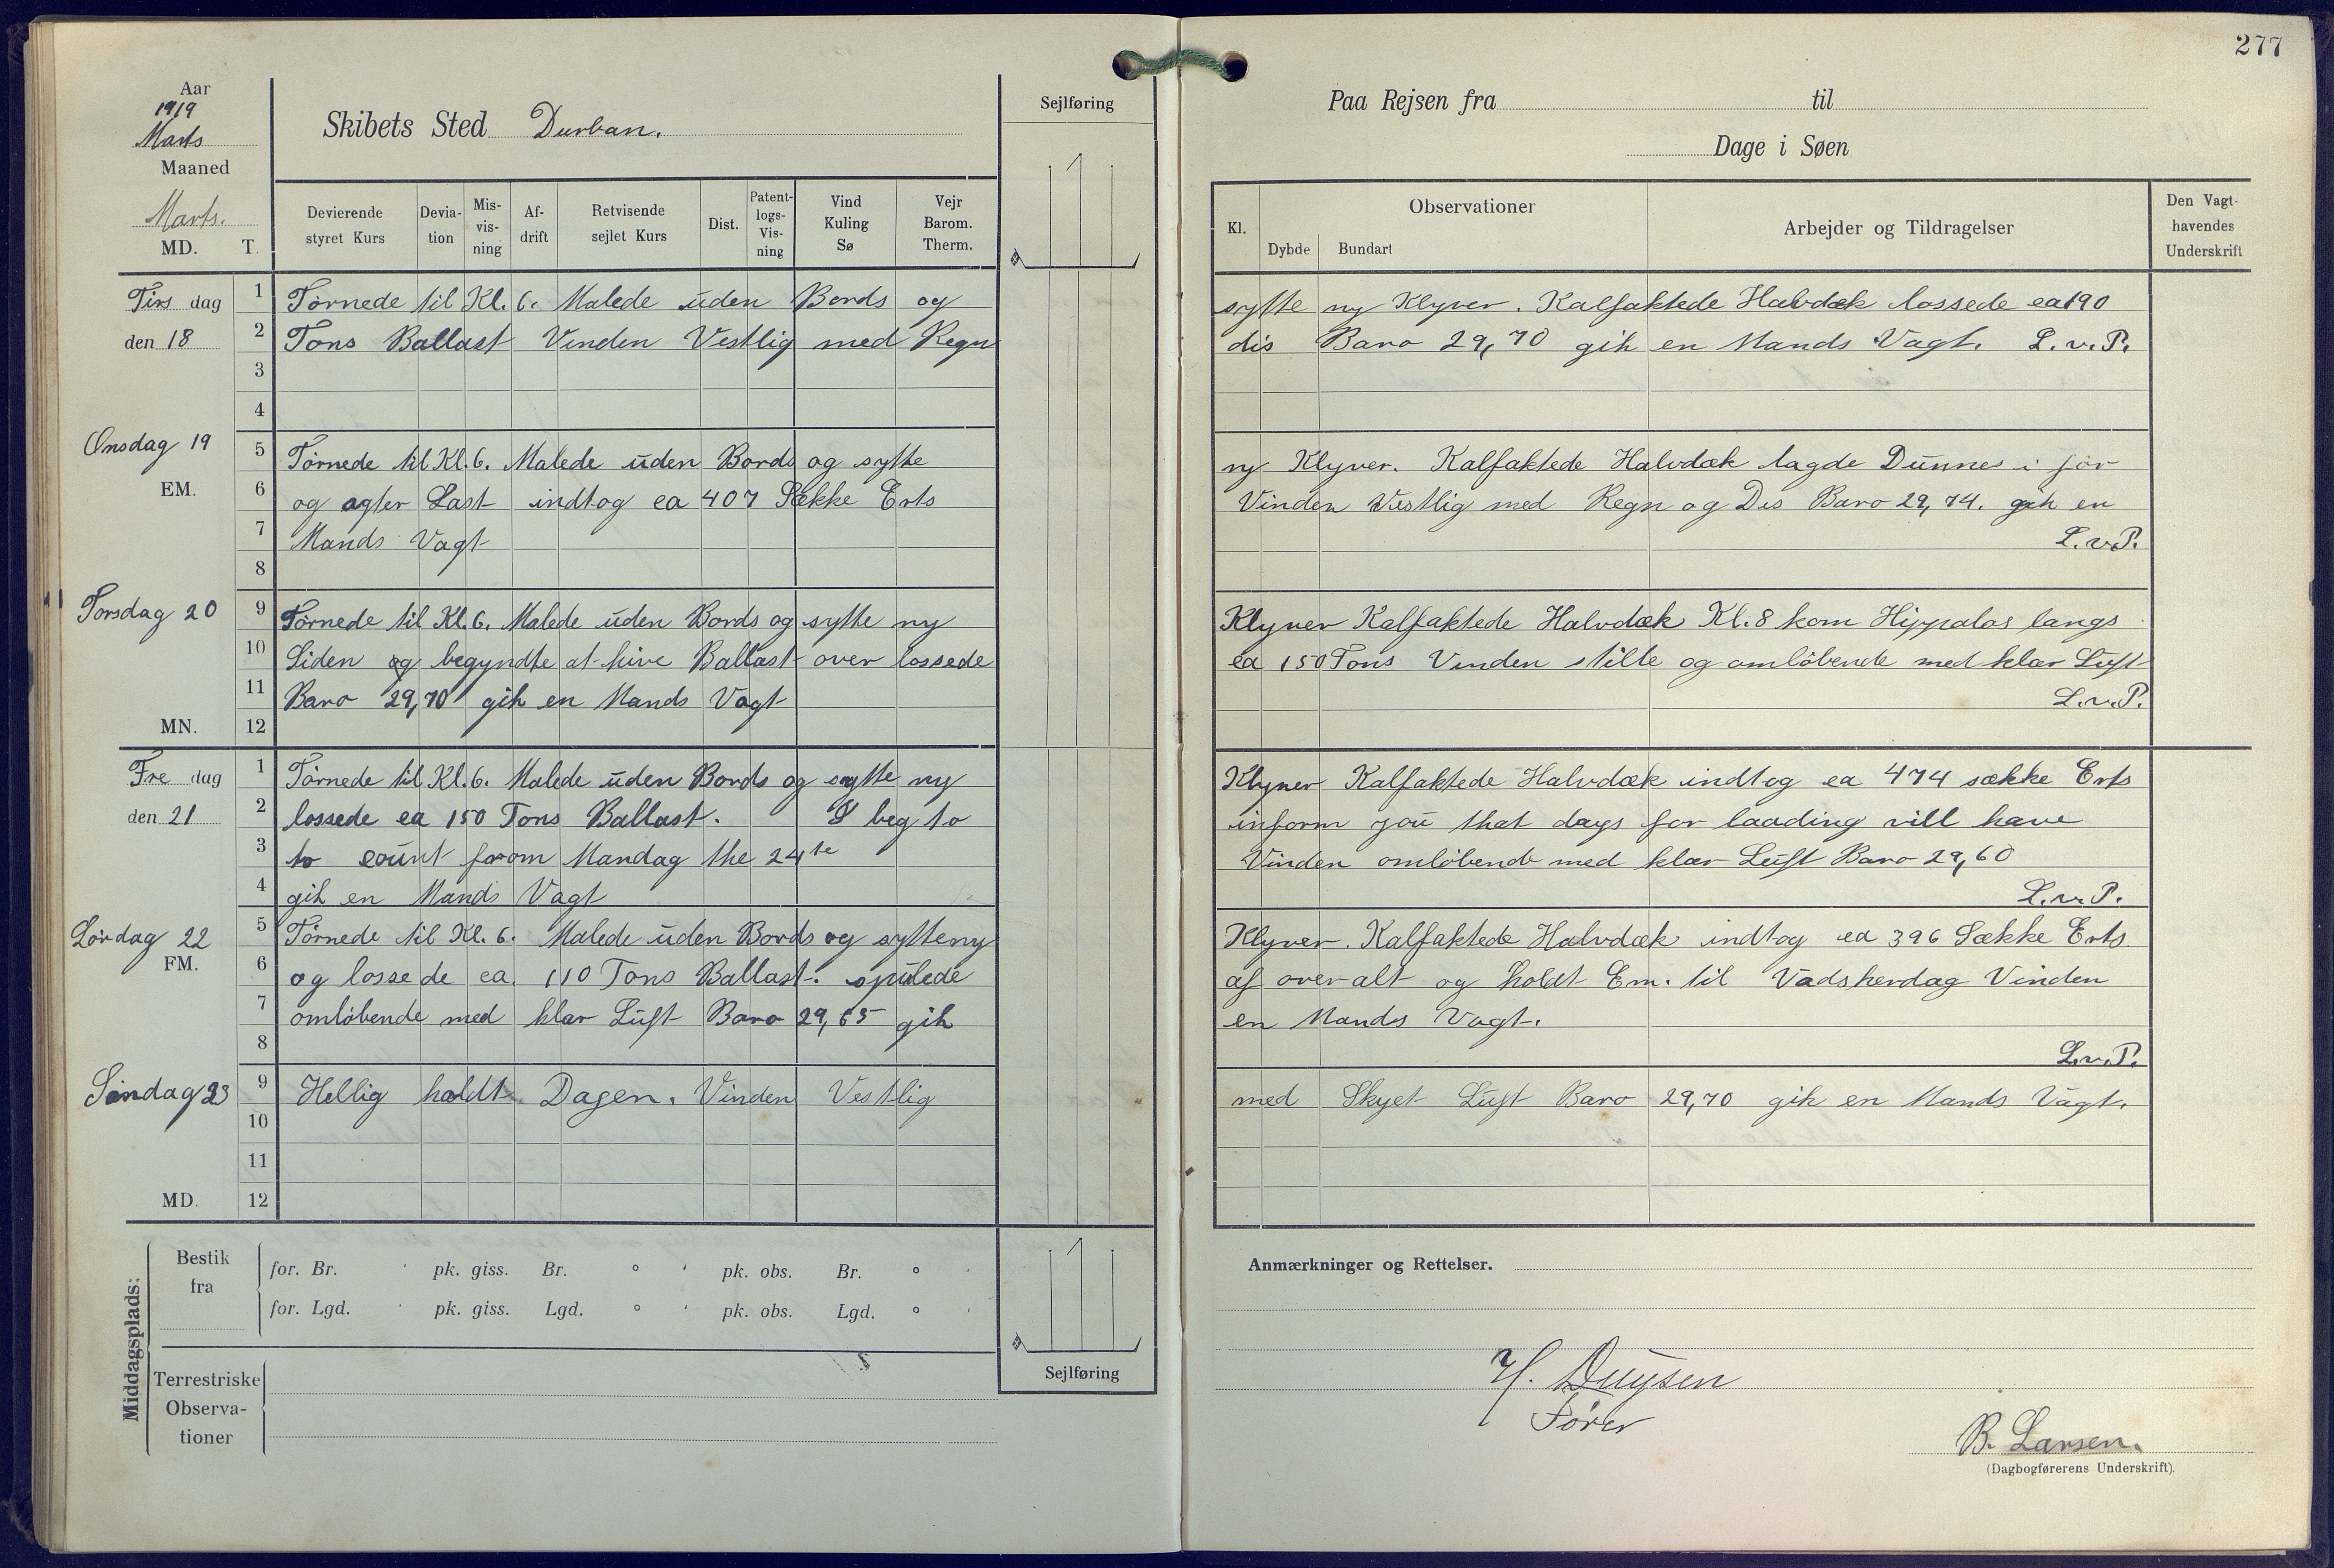 277
Aar
1919
Marts
Maaned
Marts.
MD. T.
Skibets Sted Durban.
Sejlføring
Devierende styret Kurs
Devia-tion
Mis-vis-ning
Af-drift
Retvisende sejlet Kurs
Dist.
Patent-logs-Vis-ning
Vind Kuling Sø
Vejr Barom. Therm.
Paa Rejsen fra til
Dage i Søen
Kl.
Observationer
Dybde Bundart
Arbejder og Tildragelser
Den Vagt-havendes Underskrift
Tirs dag
den 18
1 Törnede til Kl. 6. Malede uden Bords og sylte ny Klyver. Kalfaktede Halvdæk lossede ca 190
2 Tons Ballast Vinden Vestlig med Regn dis Baro 29,70 gik en Mands Vagt. L.v.P.
3
4
Onsdag 19
EM.
5 Törnede til Kl. 6. Malede uden Bords og sylte ny Klyver. Kalfaktede Halvdæk lagde Dunnes i for
6 og agter Last indtog ca 407 Sække Erts Vinden Vestlig med Regn og Dis Baro 29,74. gik en
7 Mands Vagt L.v.P.
8
Torsdag 20
9 Törnede til Kl. 6. Malede uden Bords og sylte ny Klyver Kalfaktede Halvdæk Kl. 8 kom Hippalos langs
10 Siden og begyndte at hive Ballast over lossede ca 150 Tons Vinden stille og omlöbende med klar Luft
11 Baro 29,70 gik en Mands Vagt L.v.P.
MN. 12
Fre dag
den 21
1 Törnede til Kl. 6. Malede uden Bords og sylte ny Klyver Kalfaktede Halvdæk indtog ca 474 sække Erts
2 lossede ca 150 Tons Ballast. I beg to inform you that days for laading vill have
3 to count from Mandag the 24te Vinden omlöbende med klar Luft Baro 29,60
4 gik en Mands Vagt L.v.P.
Lördag 22
FM.
5 Törnede til Kl. 6. Malede uden Bords og sylte ny Klyver. Kalfaktede Halvdæk indtog ca 396 Sække Erts
6 og lossede ca. 110 Tons Ballast. spulede af over alt og holdt Em. til Vadskerdag Vinden
7 omlöbende med klar Luft Baro 29,65 gik en Mands Vagt.
8 L.v.P.
Söndag 23
9 Hellig holdt Dagen. Vinden Vestlig med Skyet Luft Baro 29,70 gik en Mands Vagt.
10
11
MD. 12
Middagsplads:
Bestik fra
for. Br. ' pk. giss. Br. ° ' pk. obs. Br. ° '
for. Lgd. ' pk. giss. Lgd. ° ' pk. obs. Lgd. ° '
Terrestriske Observa-tioner
Sejlføring
Anmærkninger og Rettelser.
H. Duysen
Fører
B. Larsen.
(Dagbogførerens Underskrift).